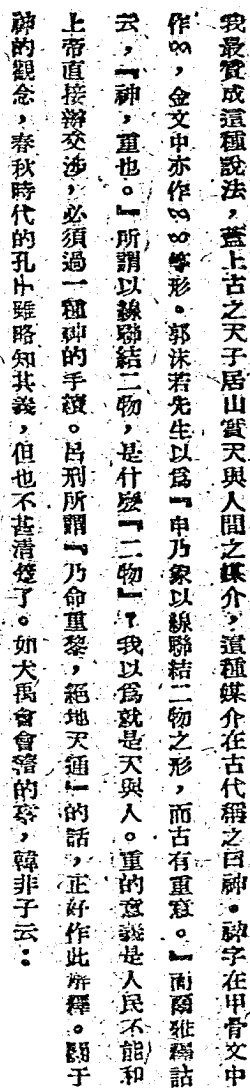 我最贊成這種說法，蓋上古之天子居山實天與人間之媒介，這種媒介在古代稱之曰神。神字在甲骨文中
作，金文中亦作等形。郭沫若先生以為『申乃象以線聯結二物之形，而古有重意。』而爾雅釋詁
云，『神，重也。』所謂以線聯結二物，是什麼『二物』？我以為就是天與人。重的意義是人民不能和
上帝直接辦交涉，必須過一種神的手續。呂刑所謂『乃命重黎，絕地天通』的話，正好作此解釋。關于
神的觀念，春秋時代的孔丘雖略知其義，但也不甚清楚了。如大禹會會稽的事，韓非子云：